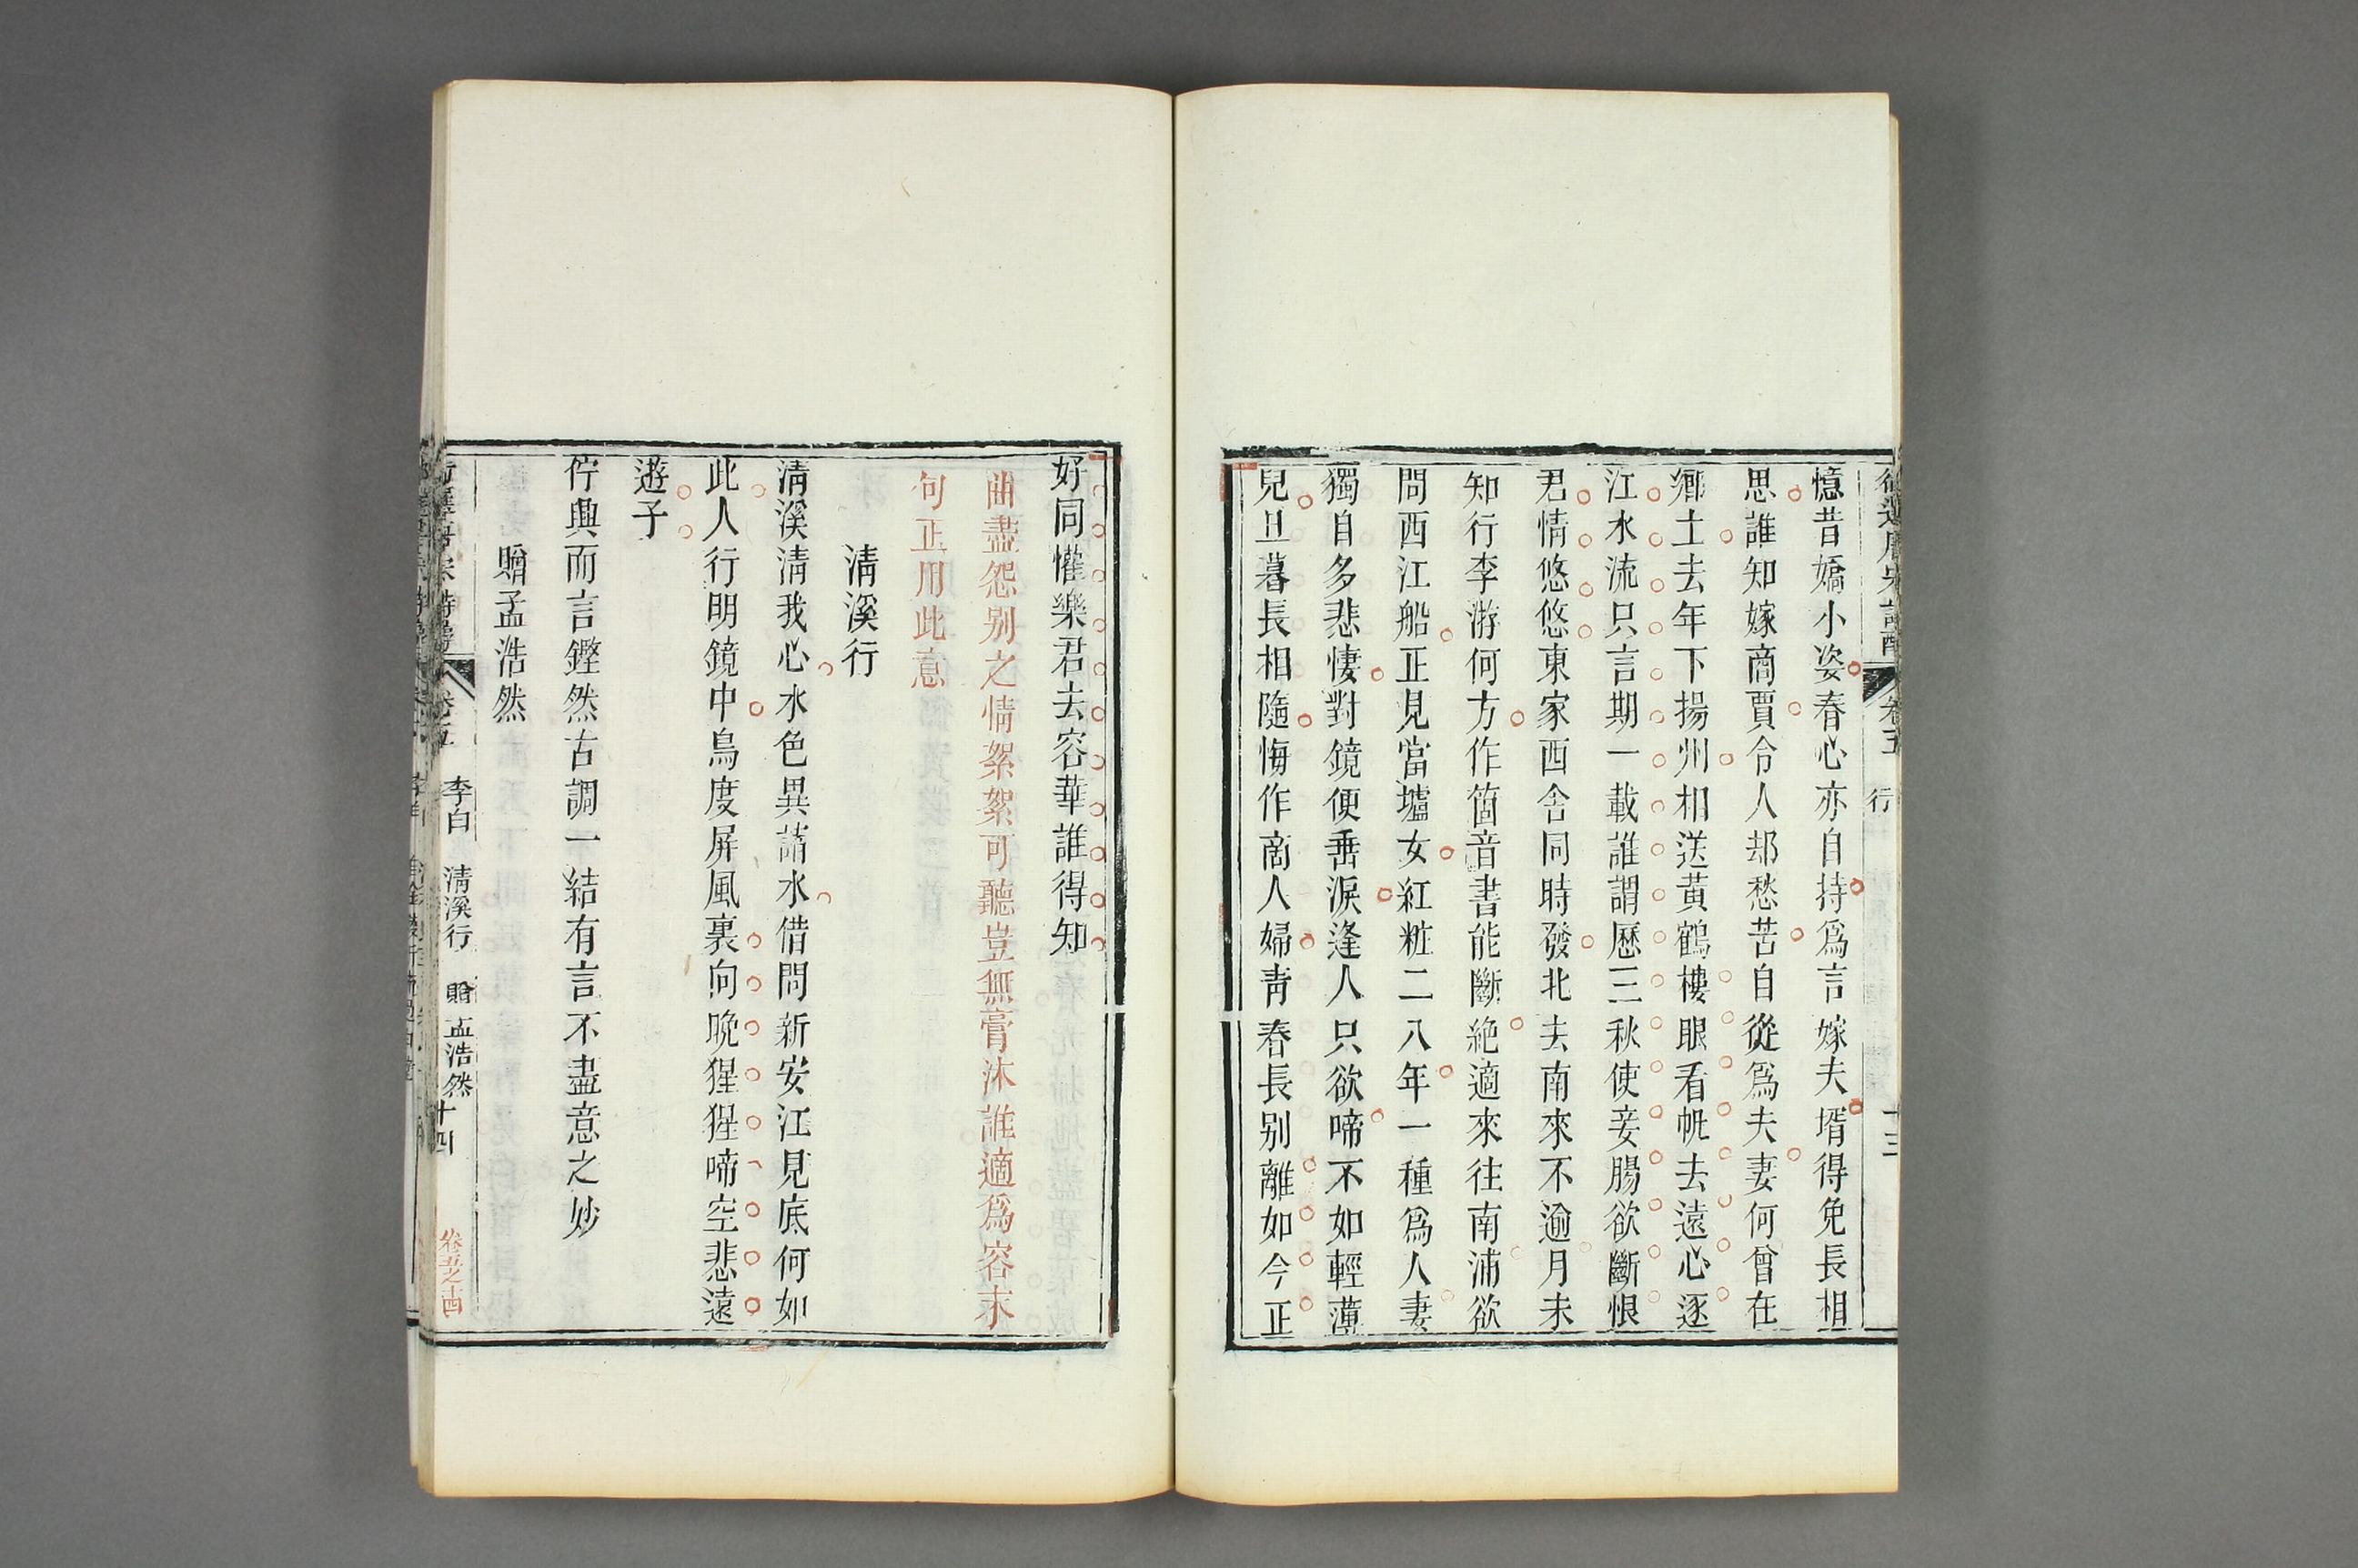 憶昔嬌小姿春心亦自持爲言嫁夫壻得免長相
思誰知嫁商賈令人却愁苦自從爲夫妻何曾在
鄉土去年下揚州相送黃鶴樓眼看帆去遠心逐
江水流只言期一載誰謂歷三秋使妾腸欲斷恨
君情悠悠東家西舍同時發北去南來不逾月未
知行李游何方作箇音書能斷絶適來往南浦欲
問西江船正見當壚女紅粧二八年一種爲人妻
獨自多悲悽對鏡便垂淚逢人只欲啼不如輕薄
兒旦暮長相隨悔作商人婦青春長别離如今正
好同懽樂君去容華誰得知
曲盡怨别之情絮絮可聽豈無膏沐誰適爲容末
句正用此意
淸溪行
淸溪淸我心水色異諸水借問新安江見底何如
此人行明鏡中鳥度屏風裏向晚猩猩啼空悲遠
遊子
佇興而言鏗然古調一結有言不盡意之妙
贈孟浩然
卷五 李白 淸溪行 贈孟浩然 十四
卷五之十四